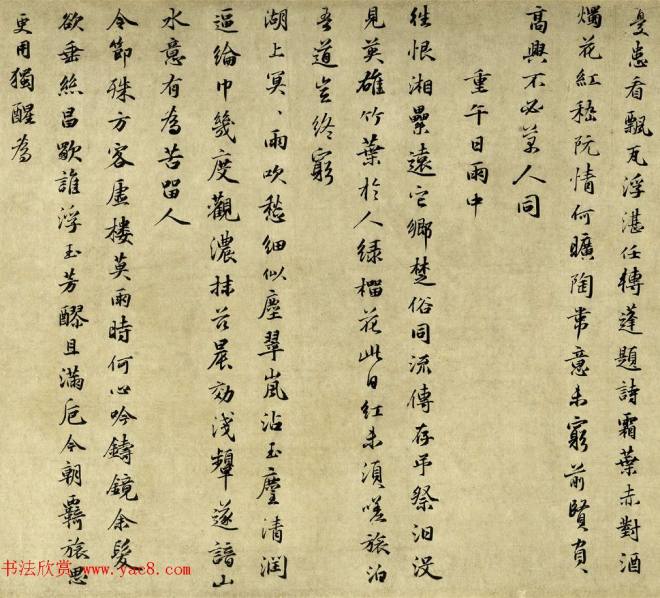 憂患看飄瓦浮湛任轉蓬題詩霜葉赤對酒
燭花紅嵇阮情何曠陶常意未窮前賢有
高興不必萬人同
重午日雨中
徃恨湘纍遠它鄉楚俗同流傳存弔祭汨没
見英雄竹葉於人緑榴花此日紅未須嗟旅泊
吾道豈終窮
湖上冥〻雨吹愁細似塵翠嵐沾玉麈清潤
逼綸巾幾度觀濃抹茲晨効淺顰遂諳山
水意有為苦留人
令節殊方客虛樓莫雨時何心吟鑄鏡余髮
欲垂絲昌歜誰浮玉芳醪且滿卮今朝羇旅思
更用獨醒為
书法欣赏 www.yac8.com